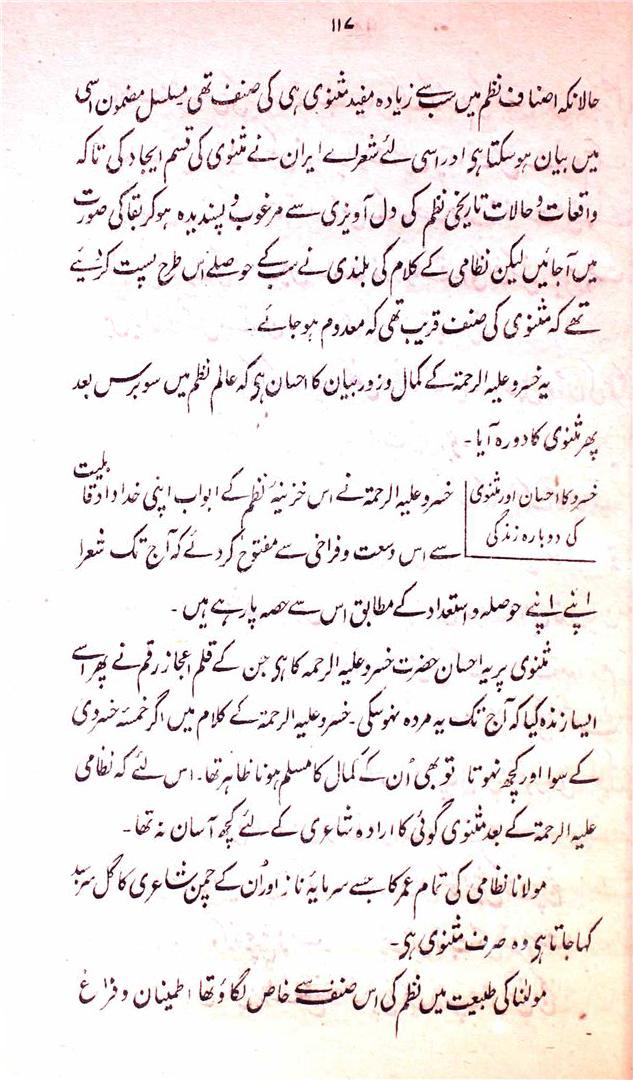 ۱۱۷
حالانکہ اصناف نظم میں سب سے زیادہ مفید مثنوی ہی کی صنف تھی مسلسل مضمون اسی
میں بیان ہو سکتا ہی اور اسی لئے شعراے ایران نے مثنوی کی قسم ایجاد کی تاکہ
واقعات و حالات تاریخی نظم کی دل آویزی سے مرغوب و پسندیدہ ہو کر بقا کی صورت
میں آ جائیں لیکن نظامی کے کلام کی بلندی نے سب کے حوصلے اس طرح پست کر دیئے
تھے کہ مثنوی کی صنف قریب تھی کہ معدوم ہو جائے۔
یہ خسرو علیہ الرحمۃ کے کمال و زور بیان کا احسان ہی کہ عالم نظم میں سو برس بعد
پھر مثنوی کا دورہ آیا۔
خسرو کا احسان اور مثنوی
کی دوبارہ زندگی
خسرو علیہ الرحمۃ نے اس خزینۂ نظم کے ابواب اپنی خداداد قابلیت
سے اس وسعت و فراخی سے مفتوح کر دئے کہ آج تک شعرا
اپنے اپنے حوصلہ و استعداد کے مطابق اس سے حصہ پا رہے ہیں۔
مثنوی پر یہ احسان حضرت خسرو علیہ الرحمہ کا ہی جن کے قلم اعجاز رقم نے پھر اسے
ایسا زندہ کیا کہ آج تک یہ مردہ نہو سکی۔ خسرو علیہ الرحمۃ کے کلام میں اگر خمسۂ خسروی
کے سوا اور کچھ نہوتا تو بھی اُن کے کمال کا مسلم ہونا ظاہر تھا۔ اس لئے کہ نظامی
علیہ الرحمۃ کے بعد مثنوی گوئی کا ارادہ شاعری کے لئے کچھ آسان نہ تھا۔
مولانا نظامی کی تمام عمر کا جسے سرمایۂ ناز اور اُن کے چمن شاعری کا گل سر سبد
کہا جاتا ہی وہ صرف مثنوی ہی۔
مولٰنا کی طبیعت میں نظم کی اس صنف سے خاص لگاؤ تھا اطمینان و فراغ